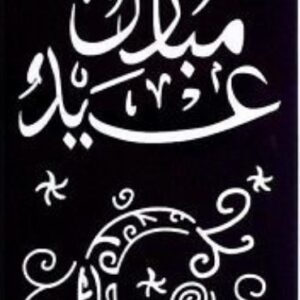 مبارك
عيد